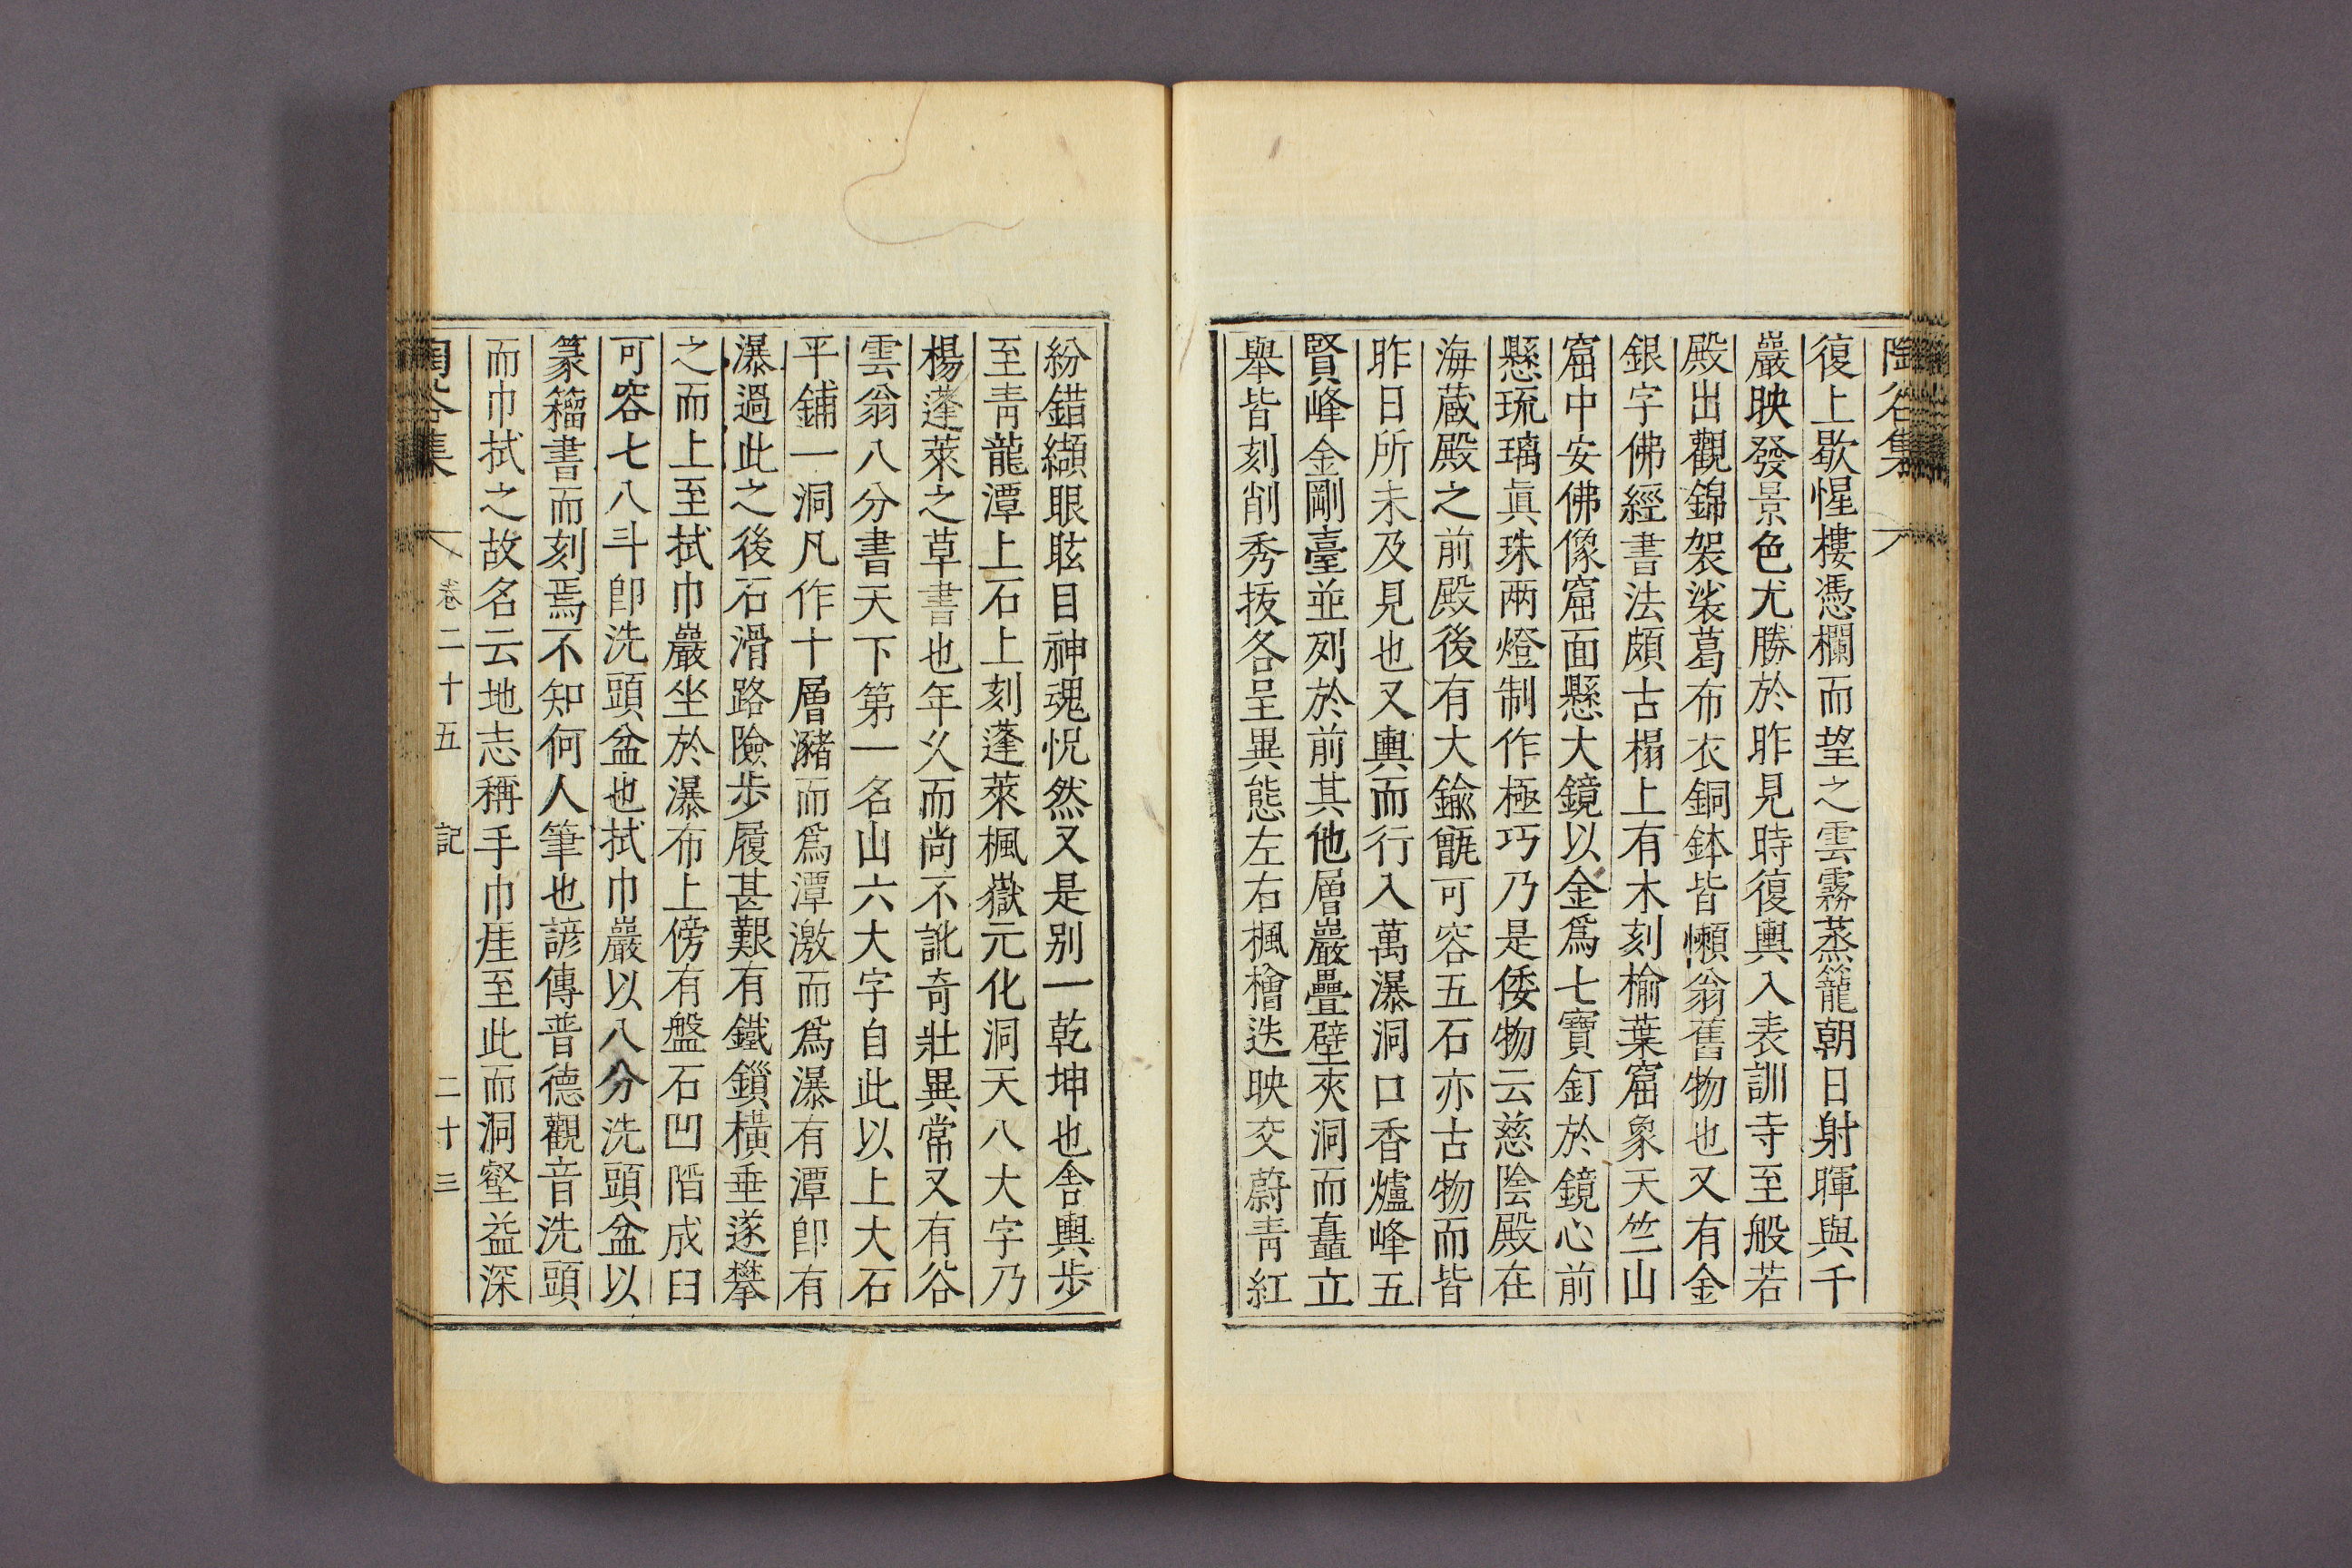 陶谷集
復上歇惺樓憑欄而望之雲霧蒸籠朝日射暉與千
巖映發景色尤勝於昨見時復輿入表訓寺至般若
殿出觀錦袈裟葛布衣銅鉢皆懶翁舊物也又有金
銀字佛經書法頗古榻上有木刻楡葉窟象天竺山
窟中安佛像窟面懸大鏡以金爲七寶釘於鏡心前
懸琉璃眞珠兩燈制作極巧乃是倭物云慈陰殿在
海藏殿之前殿後有大鍮甑可容五石亦古物而皆
昨日所未及見也又輿而行入萬瀑洞口香爐峰五
賢峰金剛臺並列於前其他層巖疊壁夾洞而矗立
擧皆刻削秀拔各呈異態左右楓檜迭映交蔚靑紅
紛錯纈眼眩目神魂怳然又是別一乾坤也舍輿步
至靑龍潭上石上刻蓬萊楓嶽元化洞天八大字乃
楊蓬萊之草書也年久而尙不訛奇壯異常又有谷
雲翁八分書天下第一名山六大字自此以上大石
平鋪一洞凡作十層瀦而爲潭激而爲瀑有潭卽有
瀑過此之後石滑路險步履甚艱有鐵鎖橫垂遂攀
之而上至拭巾巖坐於瀑布上傍有盤石凹㴠成臼
可容七八斗卽洗頭盆也拭巾巖以八分洗頭盆以
篆籀書而刻焉不知何人筆也諺傳普德觀音洗頭
而巾拭之故名云地志稱手巾崖至此而洞壑益深
陶谷集 卷二十五 記 二十三